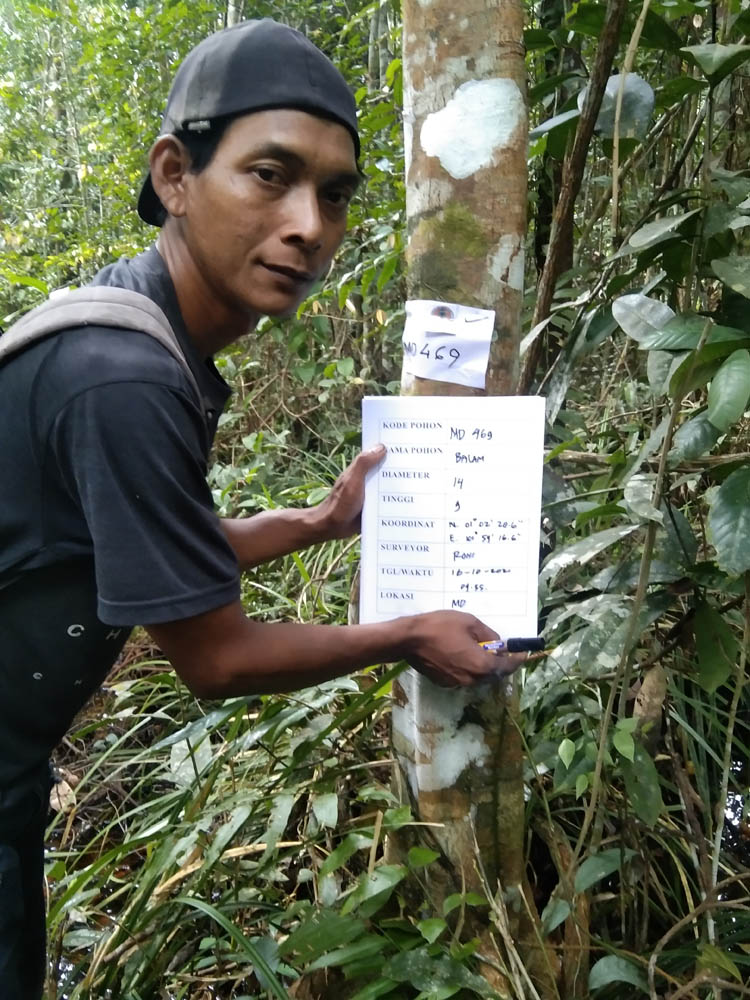 MD 469
KODE POHON MD 469
NAMA POHON BALAM
DIAMETER 14
TINGGI 9
KOORDINAT N. 01° 02' 20.6"
E. 101° 59' 16.6"
SURVEYOR RONI
TGL/WAKTU 16-10-2020
09:55
LOKASI MD
C H
C H